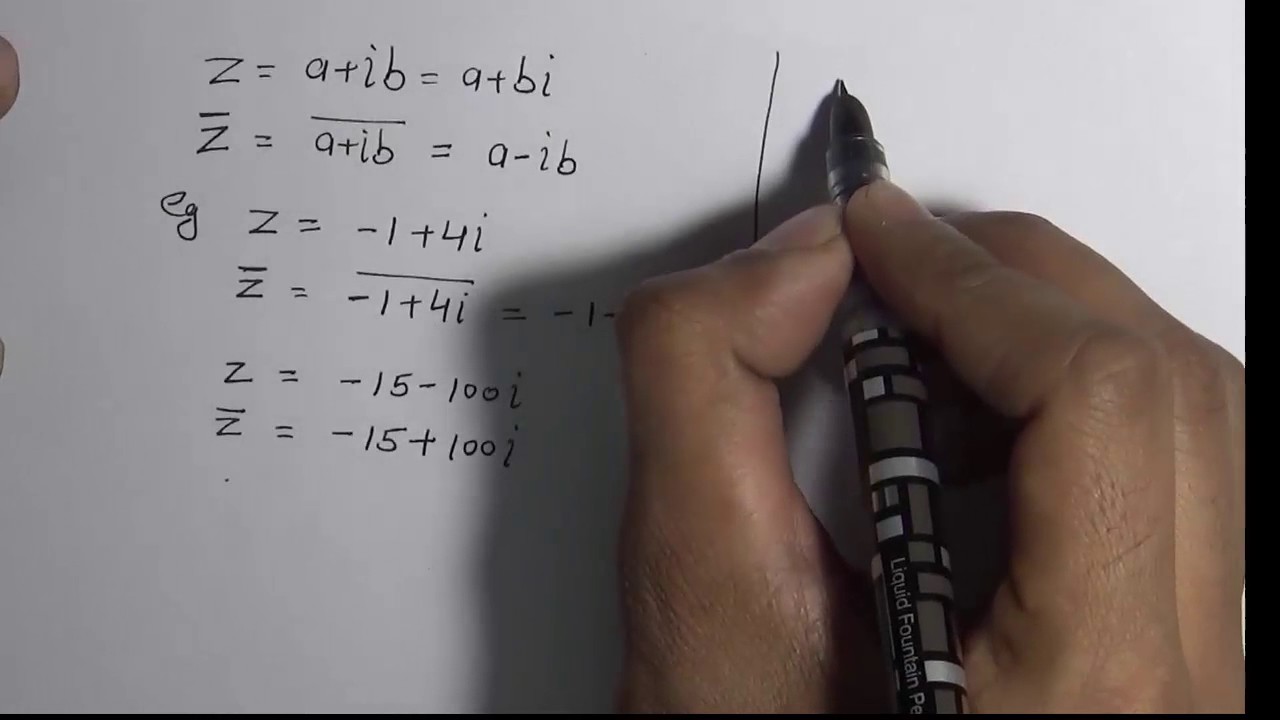 z = a+ib = a+bi
z̅ = a̅+̅i̅b̅ = a-ib
eg z = -1+4i
z̅ = -̅1̅+̅4̅i̅ = -1-
z = -15-100i
z̅ = -15+100i
Liquid Fountain Pe